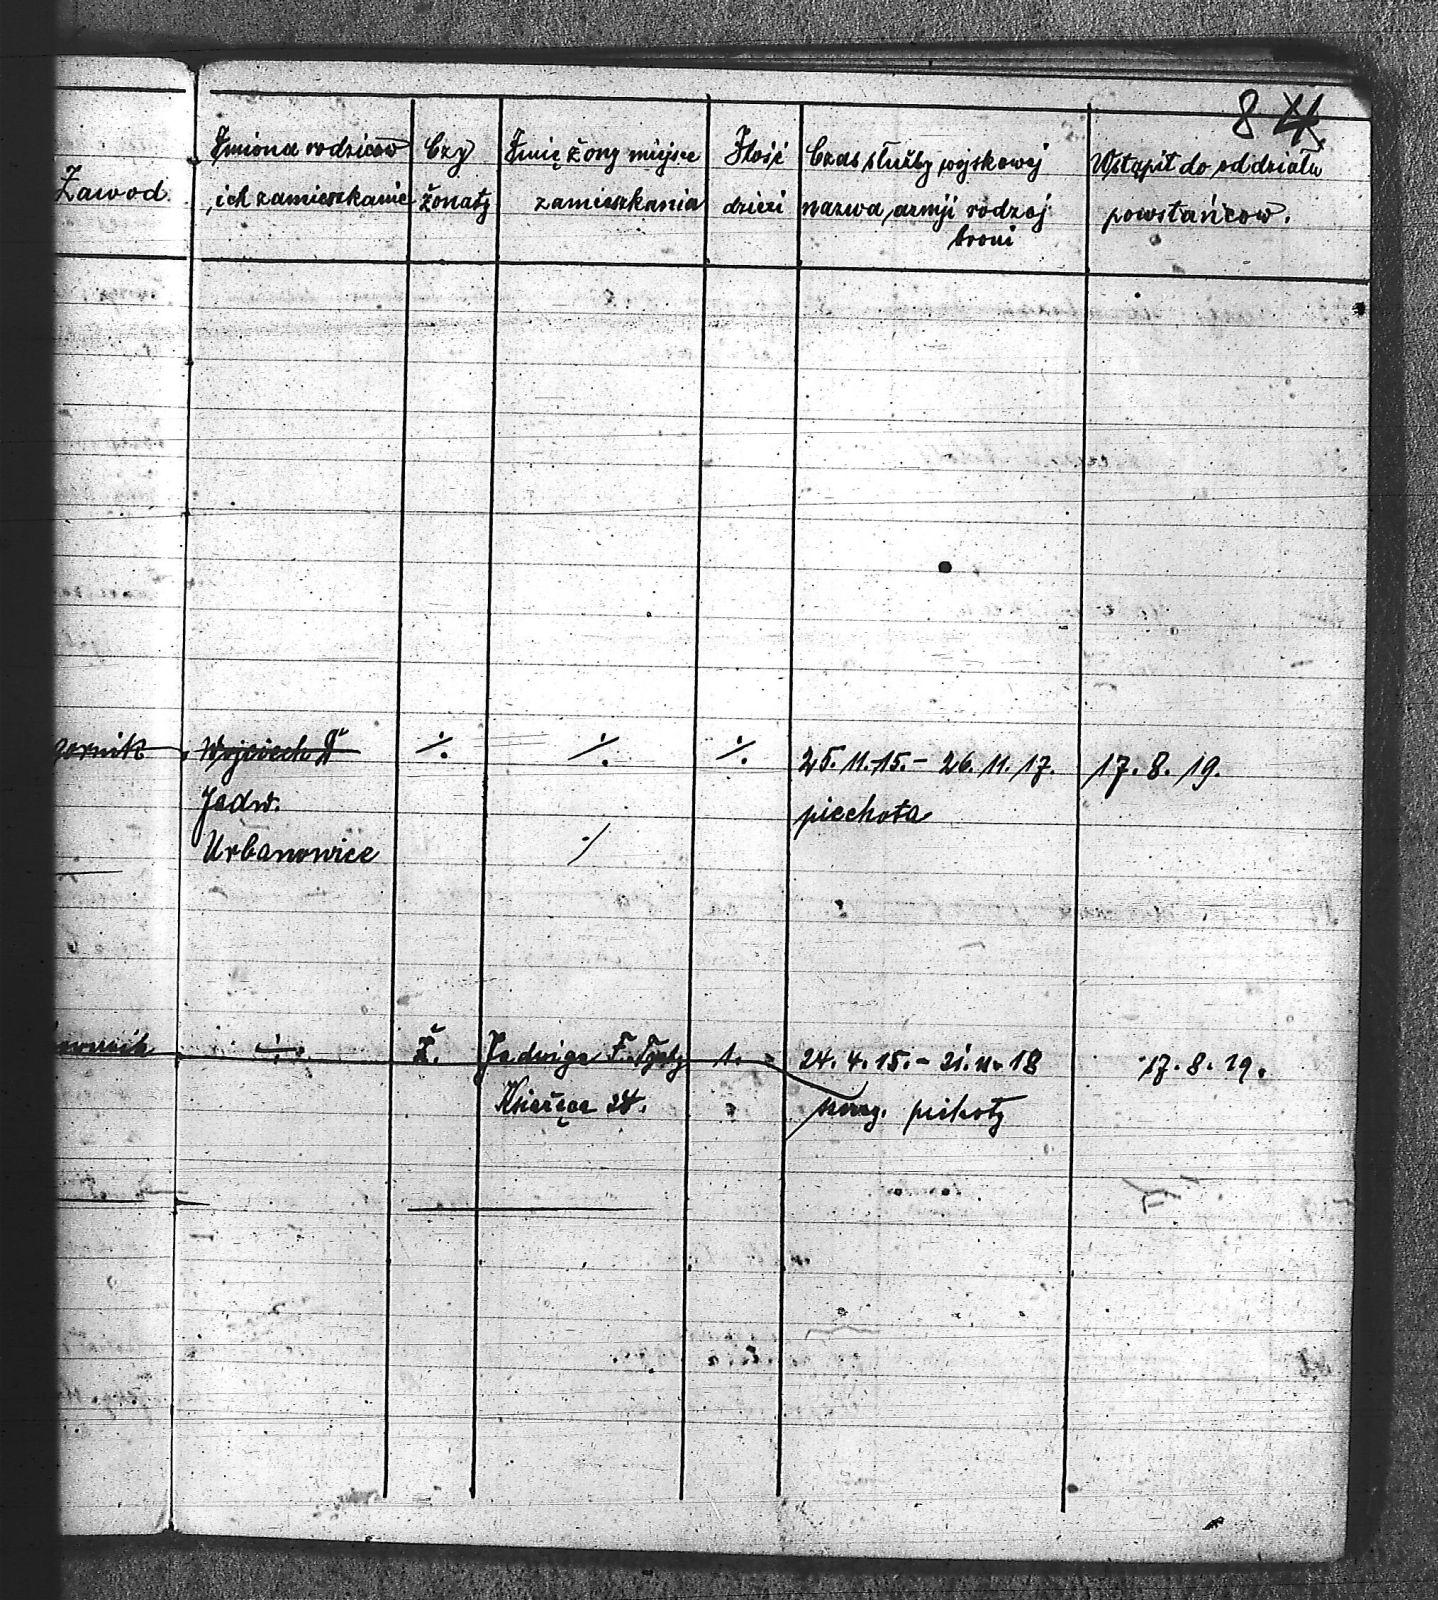 8 4
Zawod.
Imiona rodziców
ich zamieszkanie
Czy
żonaty
Imię żony miejsce
zamieszkania
Ilość
dzieci
Czas służby wojskowej
nazwa armji rodzaj
broni
Wstąpił do oddziału
powstańcow.
gornik
Wojciech
Jadw.
Urbanowice
./.
./.
./.
25. 11. 15. - 26. 11. 17.
piechota
17. 8. 19.
./.
÷
Ż.
Jadwiga
1.
24. 4. 15. - 21. 11. 18
17. 8. 19.
24.